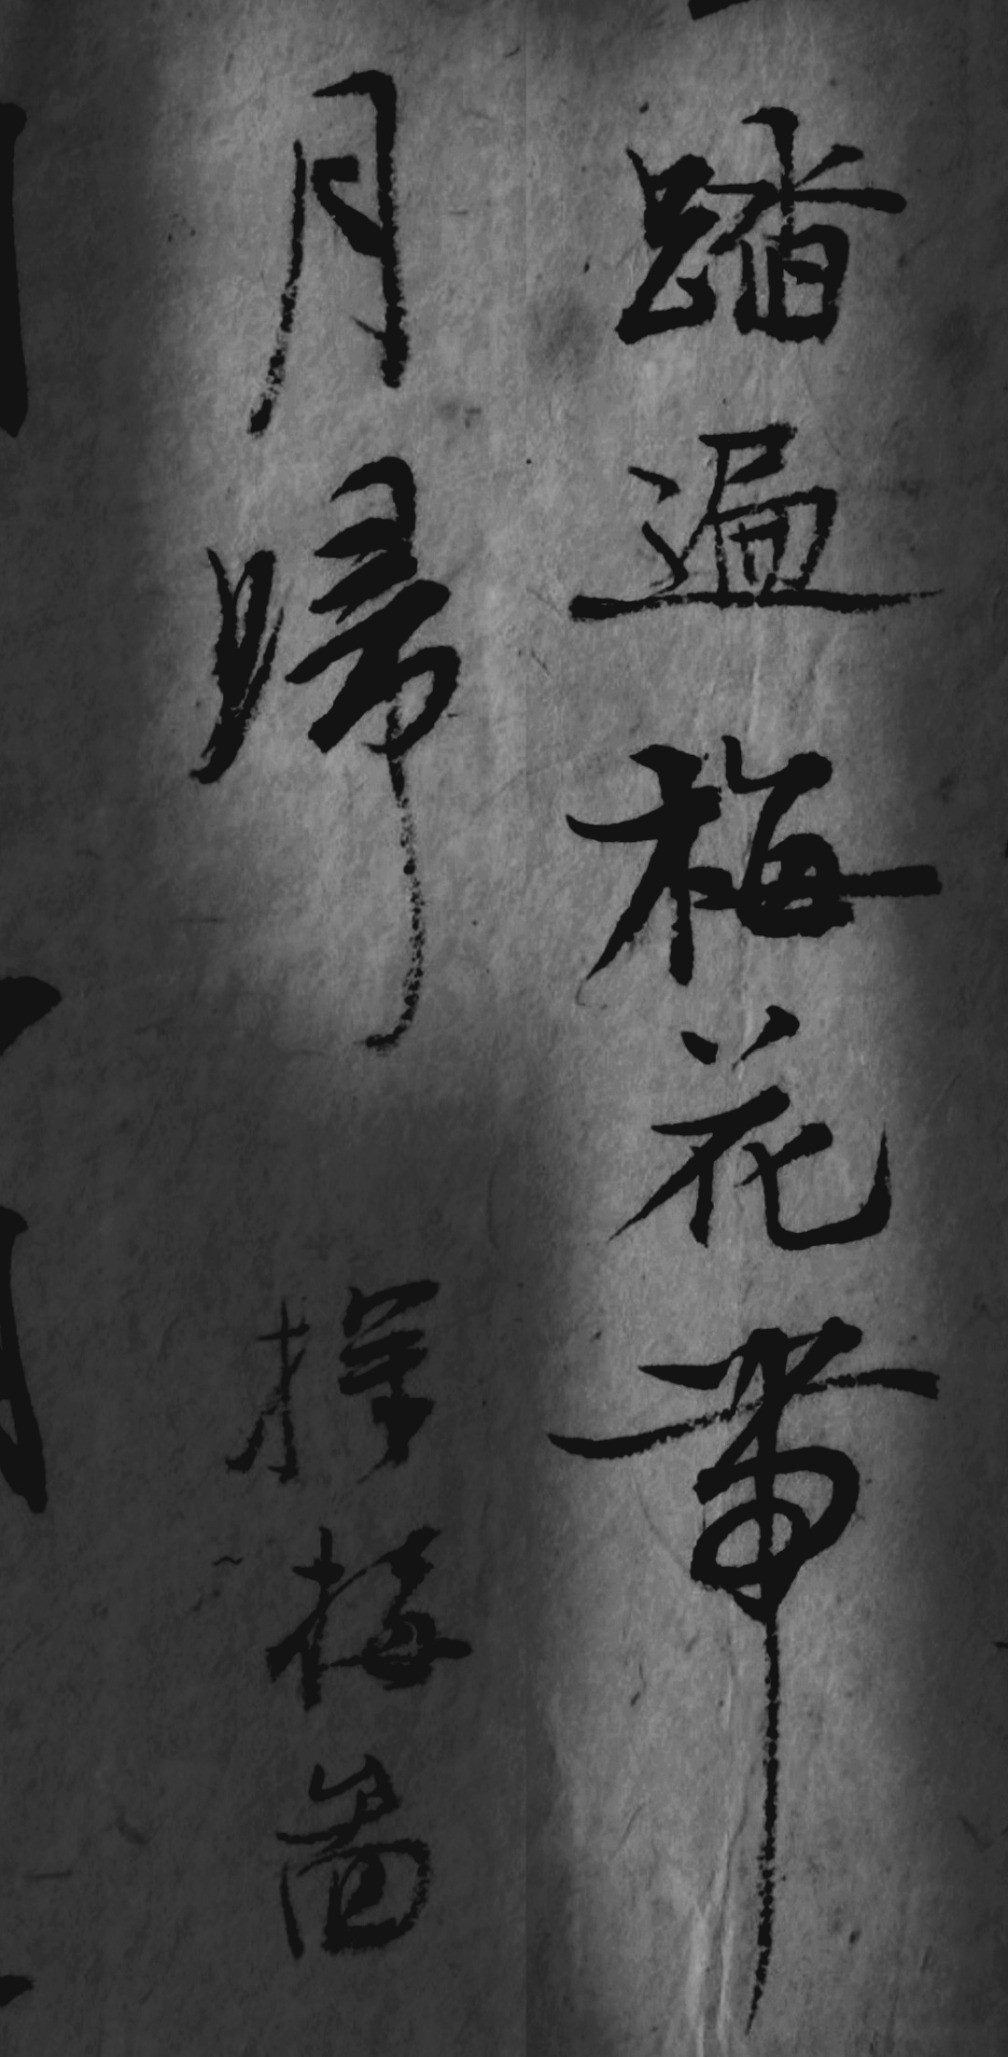 踏遍梅花帶
月歸 探梅圖